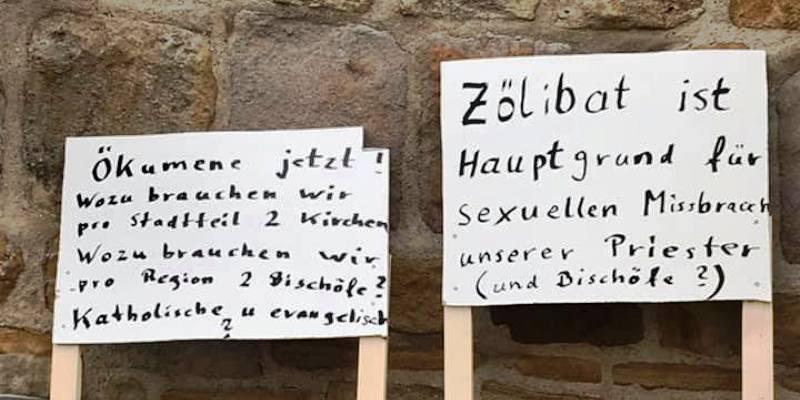 Ökumene jetzt!
Wozu brauchen wir
pro Stadtteil 2 Kirchen
Wozu brauchen wir
pro Region 2 Bischöfe?
Katholische u evangelisch
?
Zölibat ist
Hauptgrund für
sexuellen Missbrauch
unserer Priester
(und Bischöfe?)